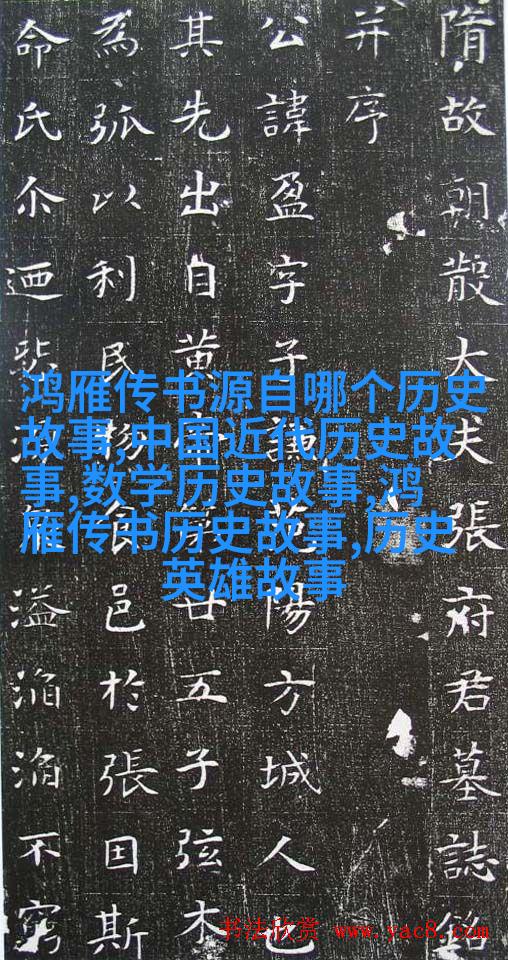 隋故朝散大夫張府君墓誌銘
并序
公諱盈字子范陽方城人也
其先出自黄帝第廿五子弦木
為弧以利民物食邑於張因斯
命氏尒迺溢滔滔不窮
鸿雁传书源自哪个历史
故事,中国近代历史故
事,数学历史故事,鸿
雁传书历史故事,历史
英雄故事
书法欣赏 www.yac8.com